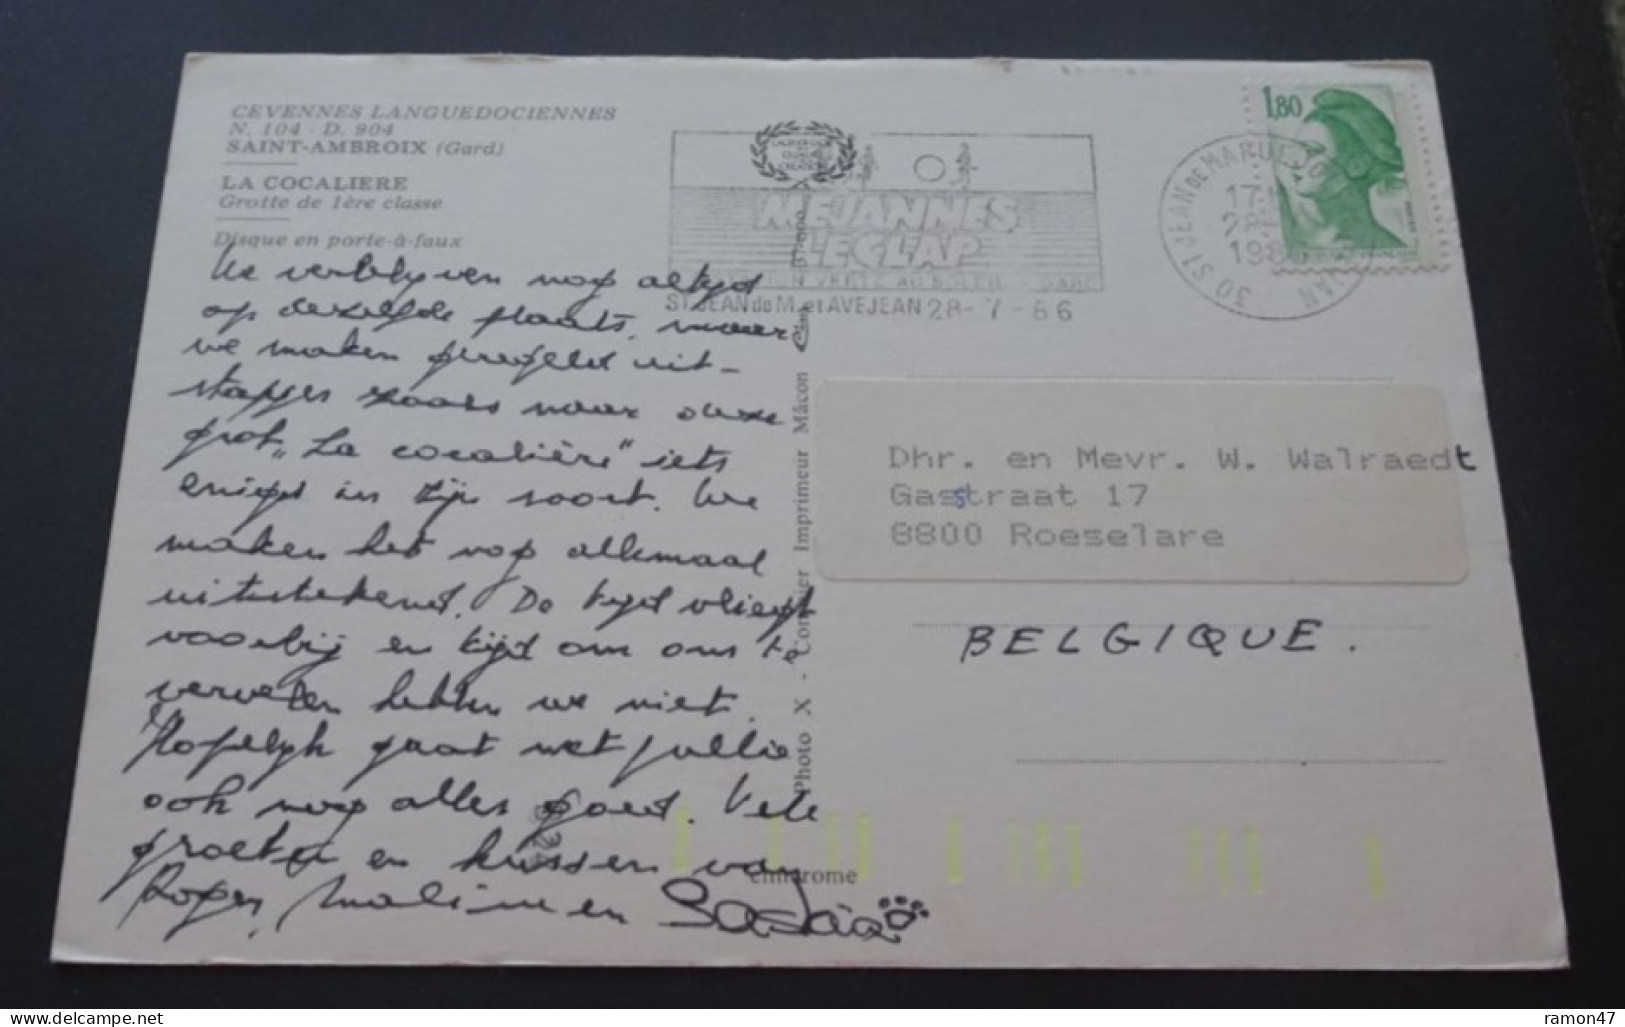 CEVENNES LANGUEDOCIENNES
N. 104 - D. 904
SAINT-AMBROIX (Gard)
LA COCALIERE
Grotte de 1ère classe
Disque en porte-à-faux
We verblijven nog altijd
op dezelfde plaats, maar
we maken geregeld uit-
stapjes zoals naar deze
grot „La cocalière" iets
enigs in zijn soort. We
maken het nog allemaal
uitstekend. De tijd vliegt
voorbij en tijd om ons te
vervelen hebben we niet.
Hopelijk gaat met jullie
ook nog alles goed. Vele
groeten en kussen van
Roger, en Saskia
MEJANNES
LE CLAP
STATION VERTE AU SOLEIL - GARD
ST JEAN de M. et AVEJEAN 28-7-86
30 ST JEAN DE MARUEJOLS
17
28
198
1,80
Photo X - Combier Imprimeur Mâcon
cim
Dhr. en Mevr. W. Walraedt
Gasstraat 17
8800 Roeselare
BELGIQUE.
cimarome
ramon47